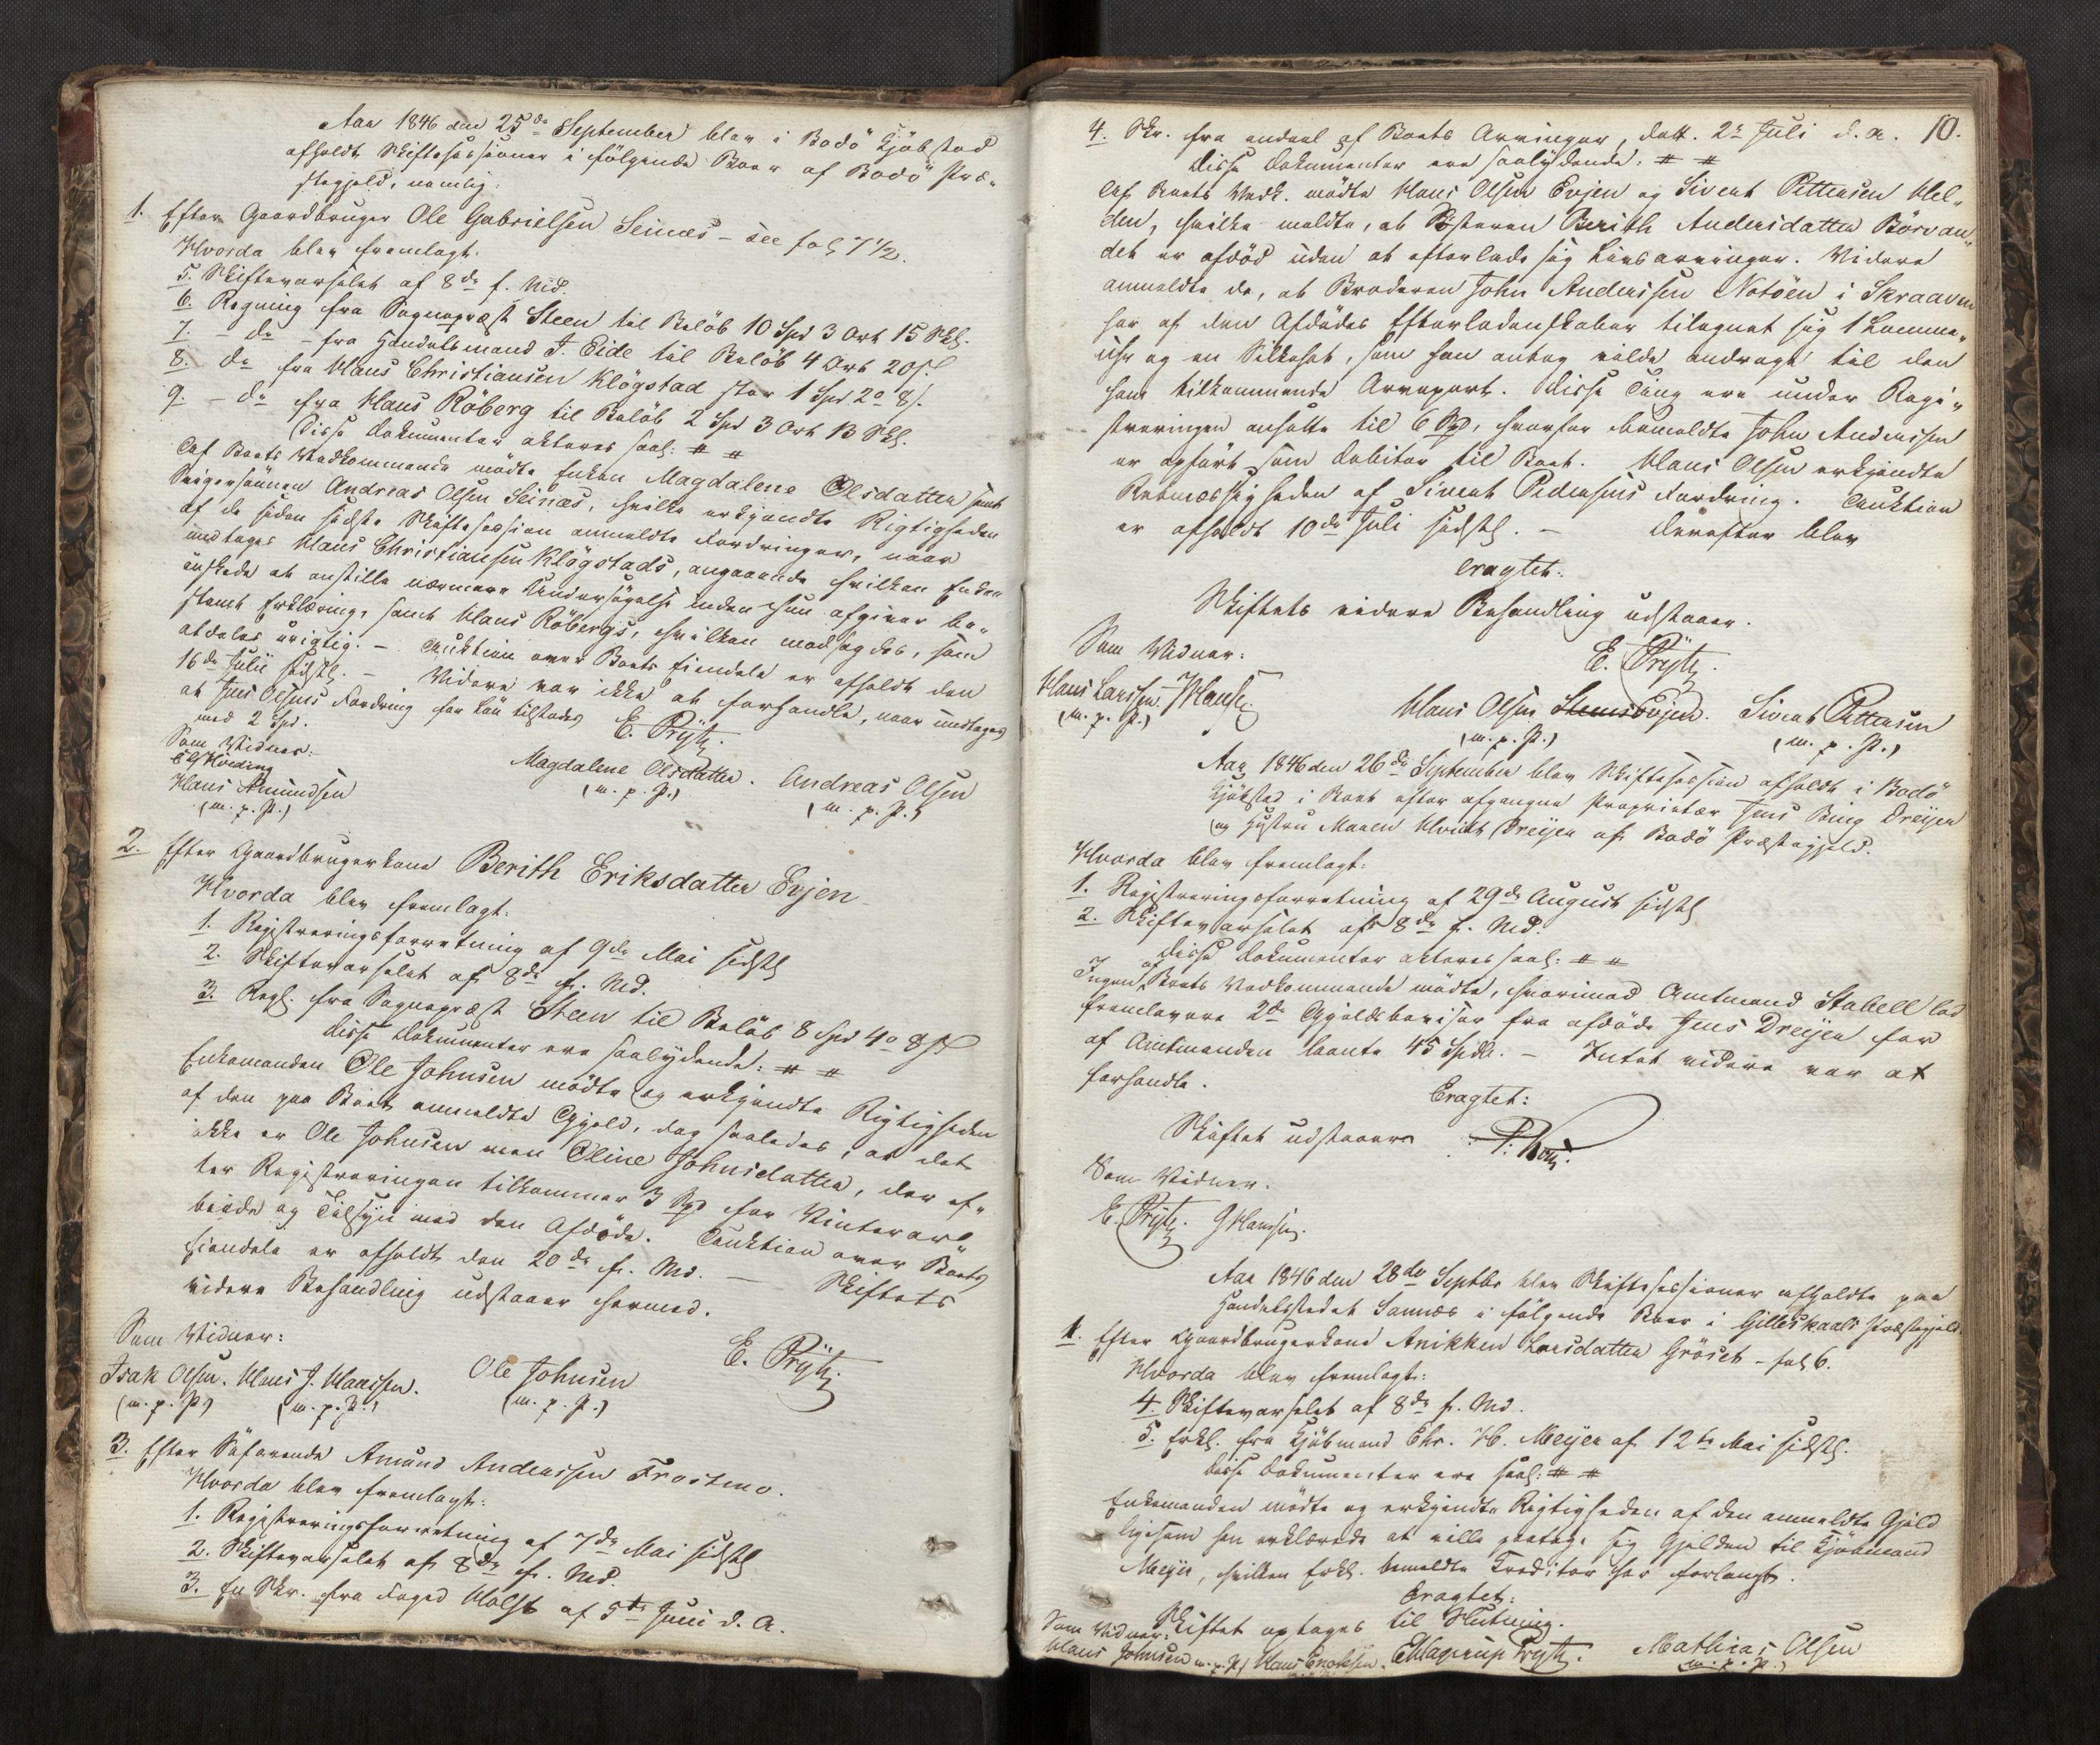 Aar 1846 den 25de September blev i Bodö Kjöbstad
afholdt Skiftesessioner i følgende Boer af Bodö Præ-
stegjeld, nemlig:
1. Efter Gaardbruger Ole Gabrielsen Seines – see fol 7 1/2.
Hvorda blev fremlagt:
5. Skiftevarselet af 8de f. Md.
6. Regning fra Sognepræst Steen til Beløb 10 Spd 3 Ort 15 Skl.
7. – do – fra Handelsmand J. Eide til Beløb 4 Ort 20 s
8. do fra Hans Christiansen Klögstad stor 1 Spd 2o 8 s.
9. – do fra Hans Röberg til Beløb 2 Spd 3 Ort 13 Skl.
Disse Dokumenter akteres saal: # #
Af Boets Vedkommende mödte Enken Magdalene Olsdatter samt
Svigersönnen Andreas Olsen Seines, hvilke erkjendte Rigtigheden
af de siden sidste Skiftesession anmeldte Fordringer, naar
undtages Hans Christiansen Klögstads, angaaende hvilken Enken
önskede at anstille nærmere Undersögelse inden hun afgiver be-
stemt Erklæring, samt Hans Röbergs, hvilken modsagdes, som
aldeles urigtig. – Auktion over Boets Eiendele er afholdt den
16de Juli sidstl. – Videre var ikke at forhandle, naar undtages
at Jens Olsens Fordring for Lön tilstodes
med 2 Spd. E. Prÿtz.
Som Vidner:
Hans Amundsen Magdalene Olsdatter. Andreas Olsen
(m. p. P.) (m. p. P.) (m. p. P.)
2. Efter Gaardbrugerkone Berith Eriksdatter Evjen
Hvorda blev fremlagt:
1. Registreringsforretning af 9de Mai sidstl
2. Skiftevarselet af 8de f. Md.
3. Regl. fra Sognepræst Steen til Beløb 8 Spd 4o 8 s
Disse Dokumenter ere saalydende: # #
Enkemanden Ole Johnsen mödte og erkjendte Rigtigheden
af den paa Boet anmeldte Gjeld, dog saaledes, at det
ikke er Ole Johnsen men Oline Johnsdatter, der ef-
ter Registreringen tilkommer 3 Spd for Vinterar-
beide og Tilsyn med den Afdöde. Auktion over Boets
Eiendele er afholdt den 20de f. Md. – Skiftets
videre Behandling udstaaer hermed.
Som Vidner: E. Prÿtz.
Isak Olsen. Hans J. Hanssen. Ole Johnsen
(m. p. P) (m. p. P.) (m. p. P.)
3. Efter Söfarende Amund Anderssen Frostmo.
Hvorda blev fremlagt:
1. Registreringsforretning af 7de Mai sidstl
2. Skiftevarselet af 8de f. Md.
3. En Skr. fra Foged Holst af 5te Juni d. A.
10.
4. Skr. fra endeel af Boets Arvinger, datt. 2de Juli d. A.
Disse Dokumenter ere saalydende: # #
Af Boets Vedk. mödte Hans Olsen Evjen og Sivert Pettersen Hel-
den, hvilke meldte, at Söstren Berith Andersdatter Börvan-
det er afdöd uden at efterlade sig Livsarvinger. Videre
anmeldte de, at Broderen John Anderssen Notöen i Skraaven
har af den Afdödes Efterladenskaber tilegnet sig 1 Lomme-
uhr og en Silkehat, som han antog vilde andrage til den
ham tilkommende Arvepart. Disse Ting ere under Regi-
streringen ansatte til 6 Spd, hvorfor bemeldte John Anderssen
er opfört som Debitor til Boet. Hans Olsen erkjendte
Retmæssigheden af Sivert Pedersens Fordring. Auktion
er afholdt 10de Juli sidstl. – Derefter blev
eragtet:
Skiftets videre Behandling udstaaer.
Som Vidner: E. Prÿtz.
Hans Larssen. Hans Olsen Evjen. Sivert Pettersen
(m. p. P.) (m. p. P.) (m. p. P.)
Aar 1846 den 26de September blev Skiftesession afholdt i Bodö
Kjöbstad i Boet efter afgangne Proprietær Jens Bing Dreijer
og Hustru Maren Hvidt Dreijer af Bodö Præstegjeld.
Hvorda blev fremlagt:
1. Registreringsforretning af 29de August sidstl
2. Skiftevarselet af 8de f. Md.
Disse Dokumenter akteres saal: # #
Ingen af Boets Vedkommende mödte, hvorimod Amtmand Stabell lod
fremlevere 2de Gjeldsbeviser fra afdöde Jens Dreijer for
af Amtmanden laante 45 Spdlr. – Intet videre var at
forhandle.
Eragtet:
Skiftet udstaaer
Som Vidner.
E. Prÿtz. G Hanssen.
Aar 1846 den 28de Septbr blev Skiftesessioner afholdte paa
Handelsstedet Sannes i følgende Boer i Gilleskaals Præstegjeld.
1. Efter Gaardbrugerkone Anikken Larsdatter Gröset – fol 6.
Hvorda blev fremlagt:
4. Skiftevarselet af 8de f. Md.
5. Erkl. fra Kjöbmand Chr. H. Meijer af 12te Mai sidstl.
Disse Dokumenter ere saal: # #
Enkemanden mödte og erkjendte Rigtigheden af den anmeldte Gjeld
ligesom han erklærede at ville paatage sig Gjelden til Kjöbmand
Meijer, hvilken Erkl. bemeldte Creditor har forlangt.
Eragtet:
Skiftet optages til Slutning.
Som Vidner: Mathias Olsen
Hans Johnsen m. p. P. Hans Enoksen. E Hagerup Prytz. (m. p. P.)